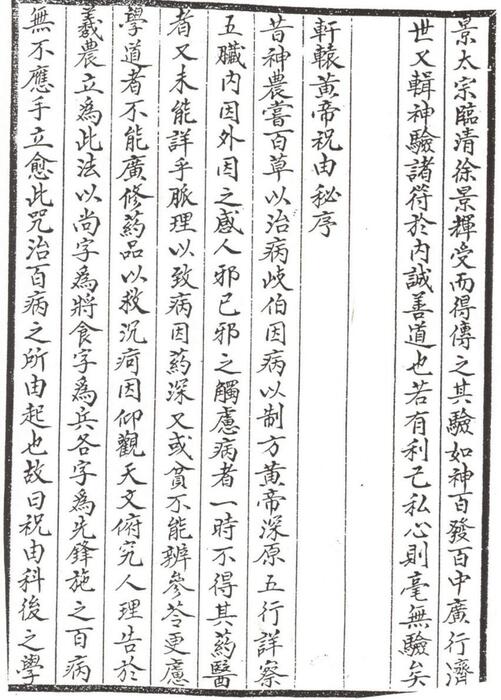 景太宗臨清徐景輝受而得傳之其驗如神百發百中廣行濟
世又輯神驗諸符於內誠善道也若有利己私心則毫無驗矣
軒轅黃帝祝由秘序
昔神農嘗百草以治病歧伯因病以制方黃帝深原五行詳察
五臟內因外因之感人邪己邪之觸慮病者一時不得其药醫
者又未能詳乎脈理以致病因药深又或貧不能辨參苓更慮
學道者不能廣修药品以救沉疴因仰觀天文俯究人理告於
羲農立為此法以尚字為將食字為兵各字為先鋒施之百病
無不應手立愈此咒治百病之所由起也故曰祝由科後之學